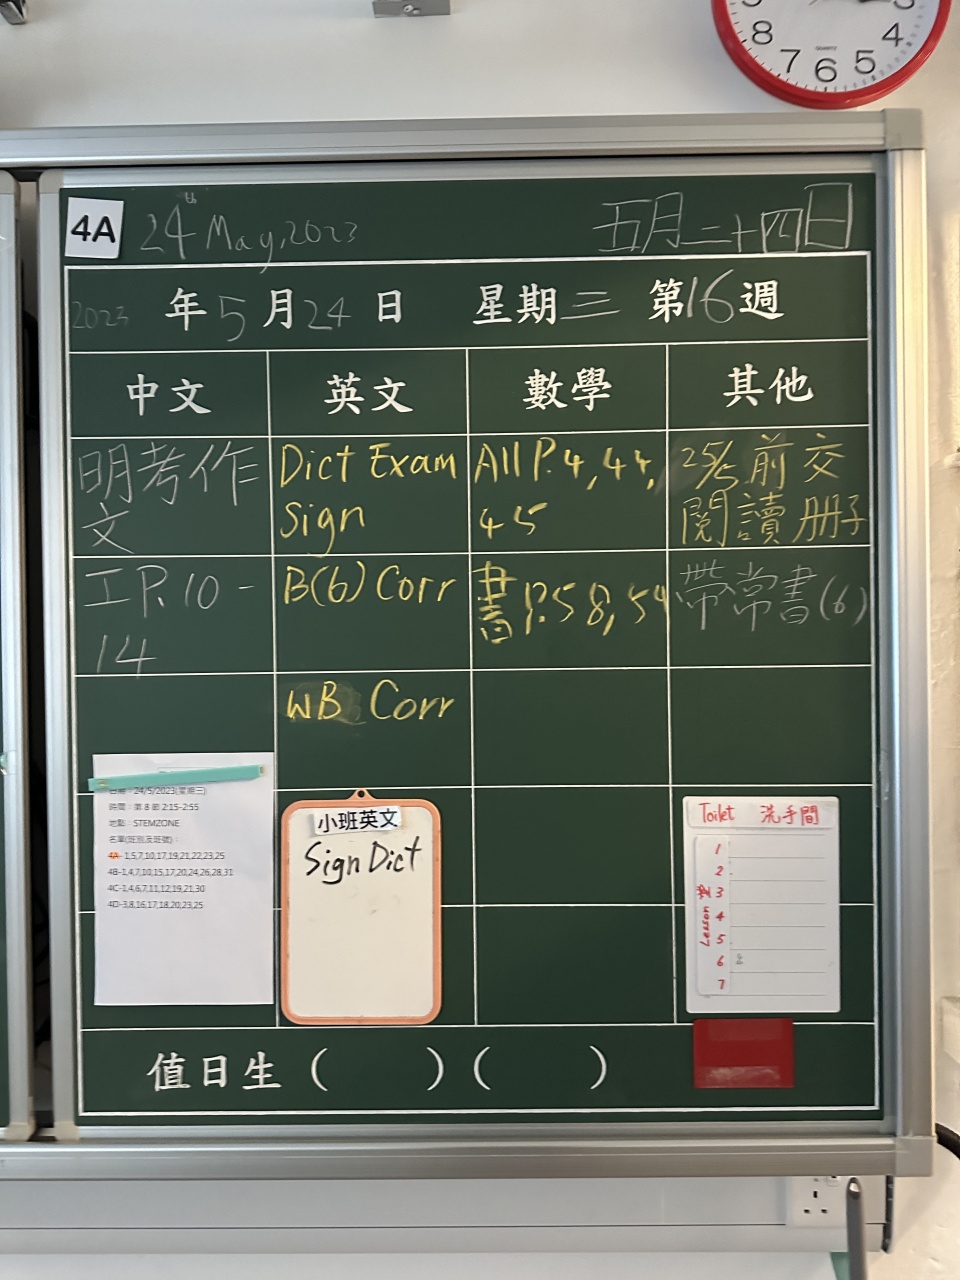 8 7 6 5 4 3
QUARTZ
4A 24th May, 2023 五月二十四日
2023 年 5 月 24 日 星期三 第16週
中文 英文 數學 其他
明考作
文
Dict Exam
Sign
All P.4, 44,
45
25/5 前交
閱讀册子
工 P.10 -
14
B(6) Corr
書 P.58, 59
帶常書(6)
WB Corr
日期：24/5/2023(星期三)
時間：第 8 節 2:15-2:55
地點：STEMZONE
名單(班別及班號)：
4A-1,5,7,10,17,19,21,22,23,25
4B-1,4,7,10,15,17,20,24,26,28,31
4C-1,4,6,7,11,12,19,21,30
4D-3,8,16,17,18,20,23,25
小班英文
Sign Dict
Toilet 洗手間
Lesson
1
2
3
4
5
6
7
值日生 ( ) ( )